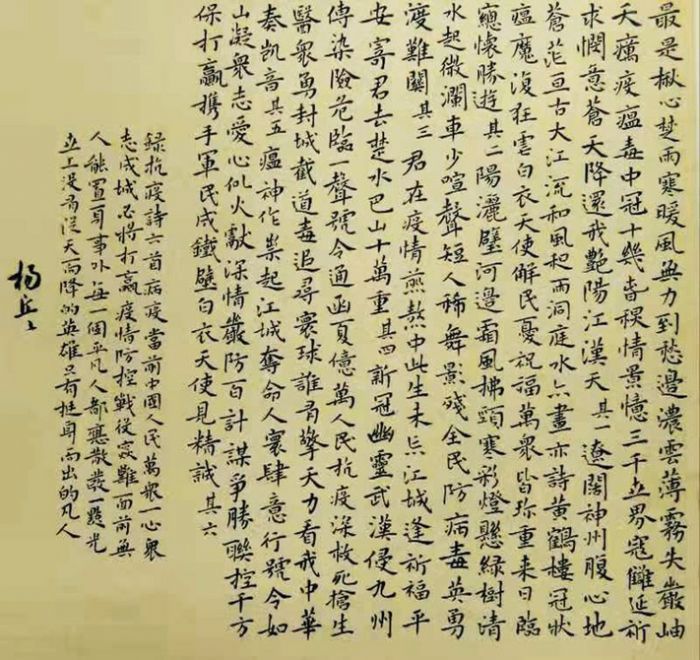 最是楸心楚雨寒暖風無力到愁邊濃雲薄霧失巖岫
夭癘疫瘟毒中冠十幾旹稷情景憶三千立界寇讎延祈
求憫意蒼天降還我艷陽江漢天其一遼闊神州腹心地
蒼茫亘古大江流和風和雨洞庭水亦畫亦詩黃鶴樓冠狀
瘟魔復狂雲白衣天使解民憂祝福萬衆皆珎重來日臨
窻懷勝遊其二陽灑璧河邊霜風拂頸寒彩燈懸綠樹清
水起微瀾車少喧聲短人稀舞影殘全民防病毒英勇
渡難關其三君在疫情煎熬中此生未忘江城逢祈福平
安寄君去楚水巴山十萬重其四新冠幽靈武漢侵九州
傳染險危臨一聲號令通函夏億萬人民抗疫深救死搶生
醫衆勇封城截道毒追尋寰球誰有擎天力看我中華
奏凱音其五瘟神作祟起江城奪命人寰肆意行號令如
山凝衆志愛心似火獻深情嚴防百計謀爭勝聯控千方
保打贏攜手軍民成鐵壁白衣天使見精誠其六
録抗疫詩六首病疫當前中國人民萬衆一心衆
志成城必將打贏疫情防控戰役災難面前無
人能置身事外每一個平凡人都應散發一點光
立上没有從天而降的英雄只有挺身而出的凡人
楊丘上